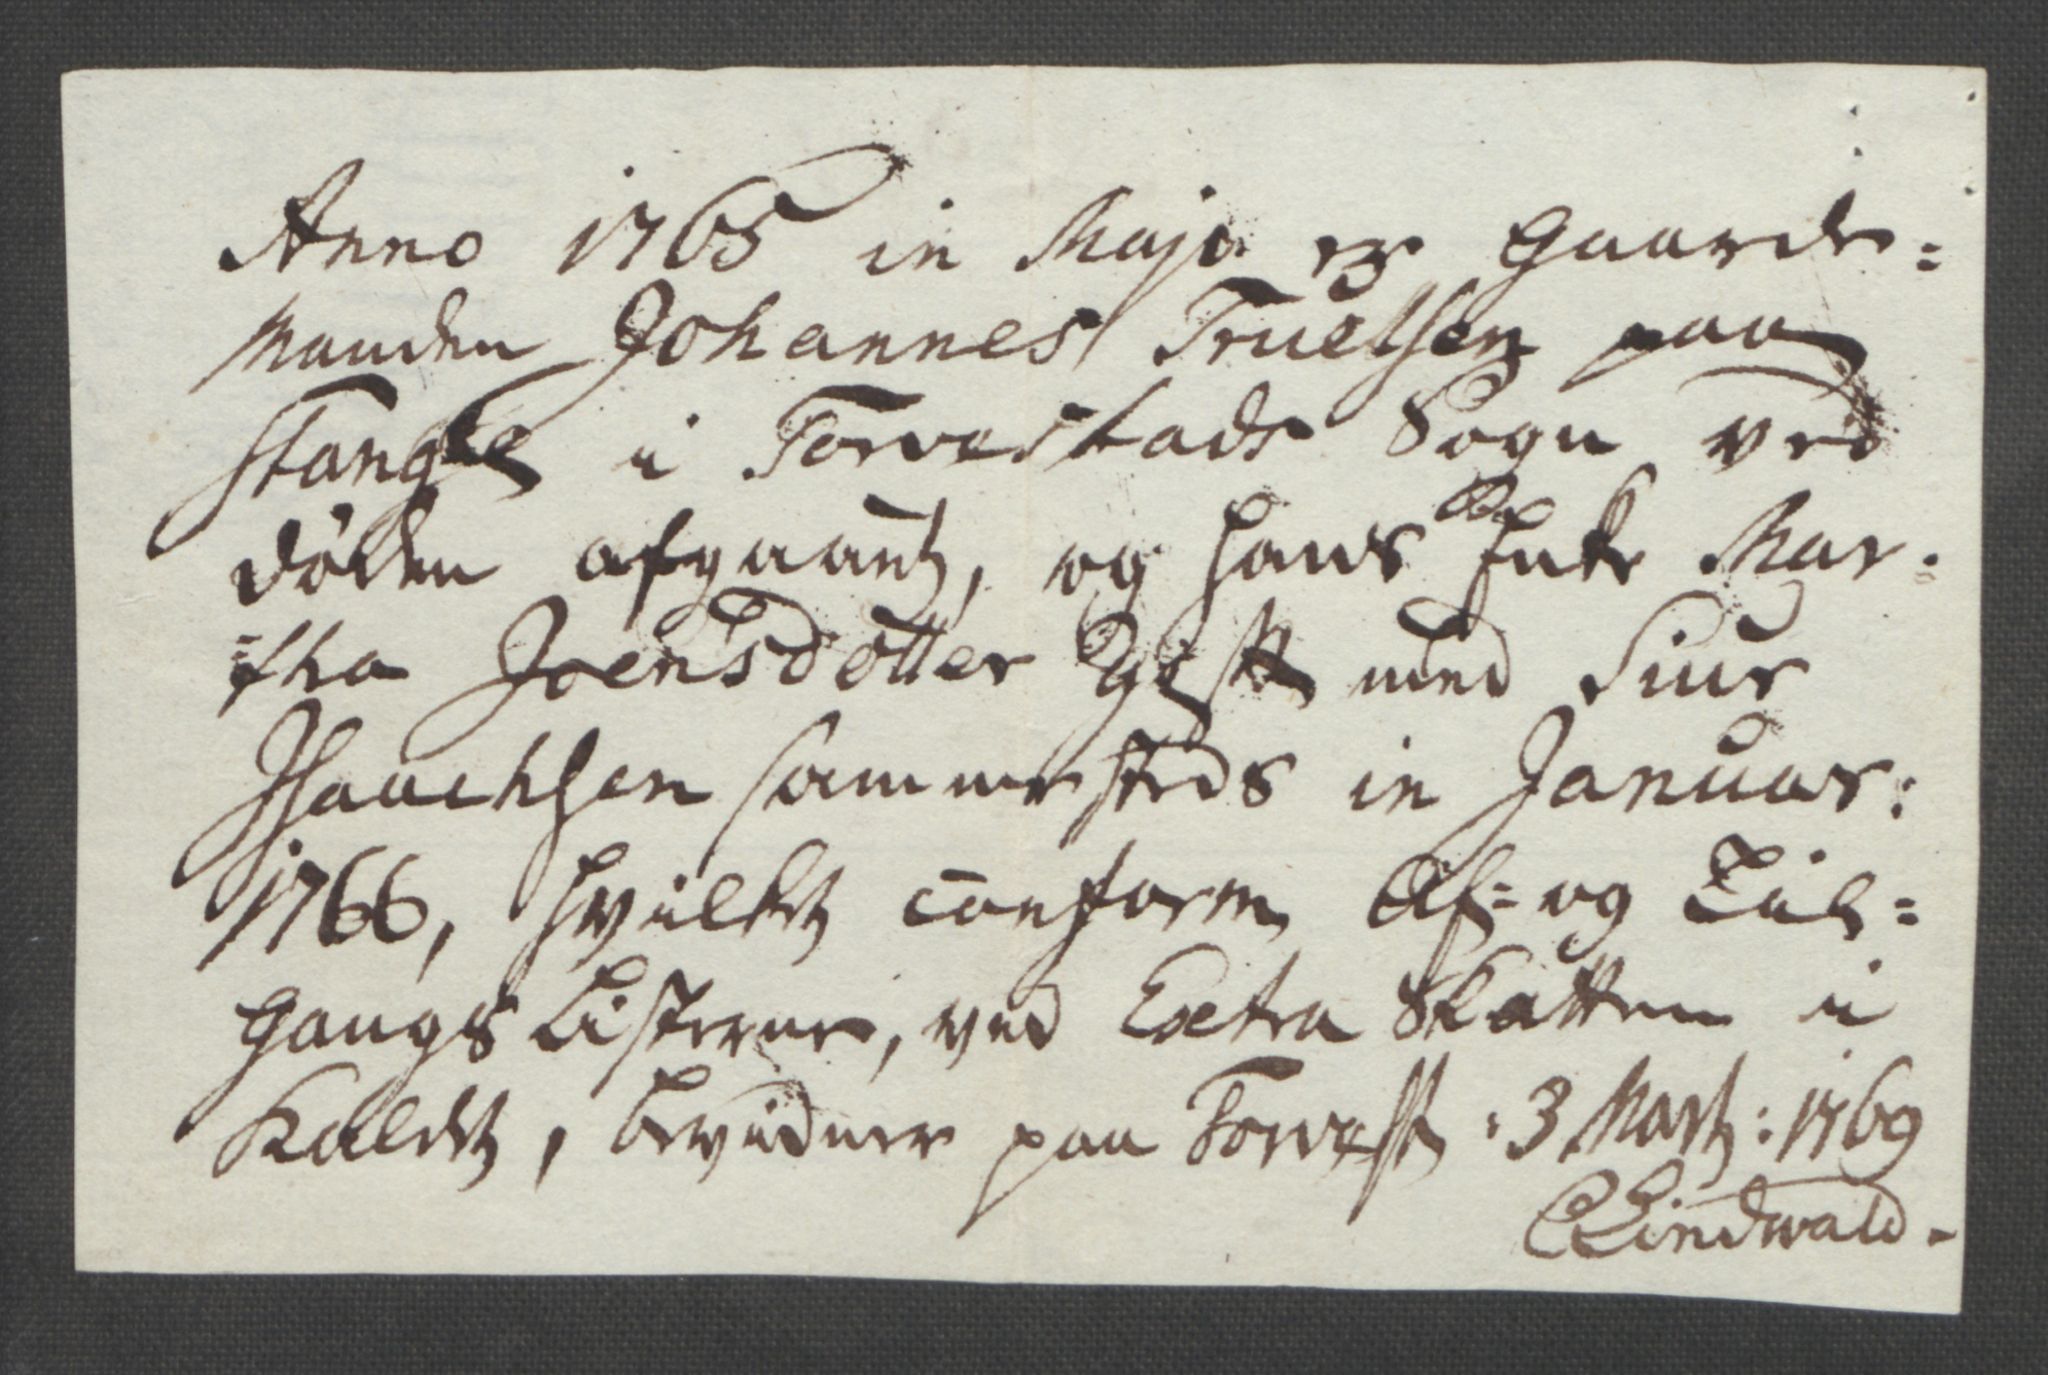 Anno 1765 in Majo er Gaarde=
Manden Johannes Truelsen paa
Stange i Torvestads Sogn ved
döden afgaaet, og hans Enke Mar-
=tha Joensdotter Egtet med Siur
Isaachsen sammesteds in Januar:
1766, hvilket conform Af= og Til=
Gangs Listerne, ved Extra Skatten i
Kaldet, bevidner paa Torvest: 3 Mart: 1769
CLindwald.